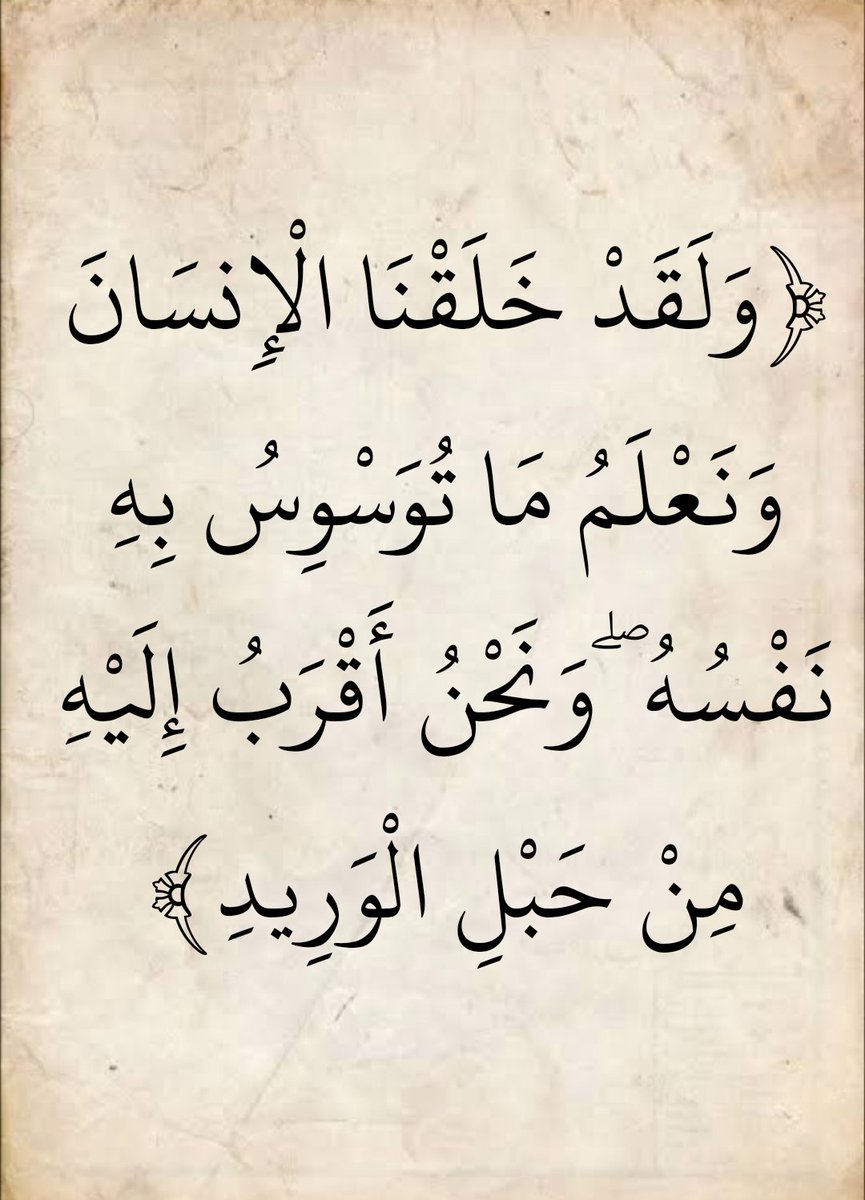 ﴿وَلَقَدْ خَلَقْنَا الْإِنسَانَ
وَنَعْلَمُ مَا تُوَسْوِسُ بِهِ
نَفْسُهُ ۖ وَنَحْنُ أَقْرَبُ إِلَيْهِ
مِنْ حَبْلِ الْوَرِيدِ﴾